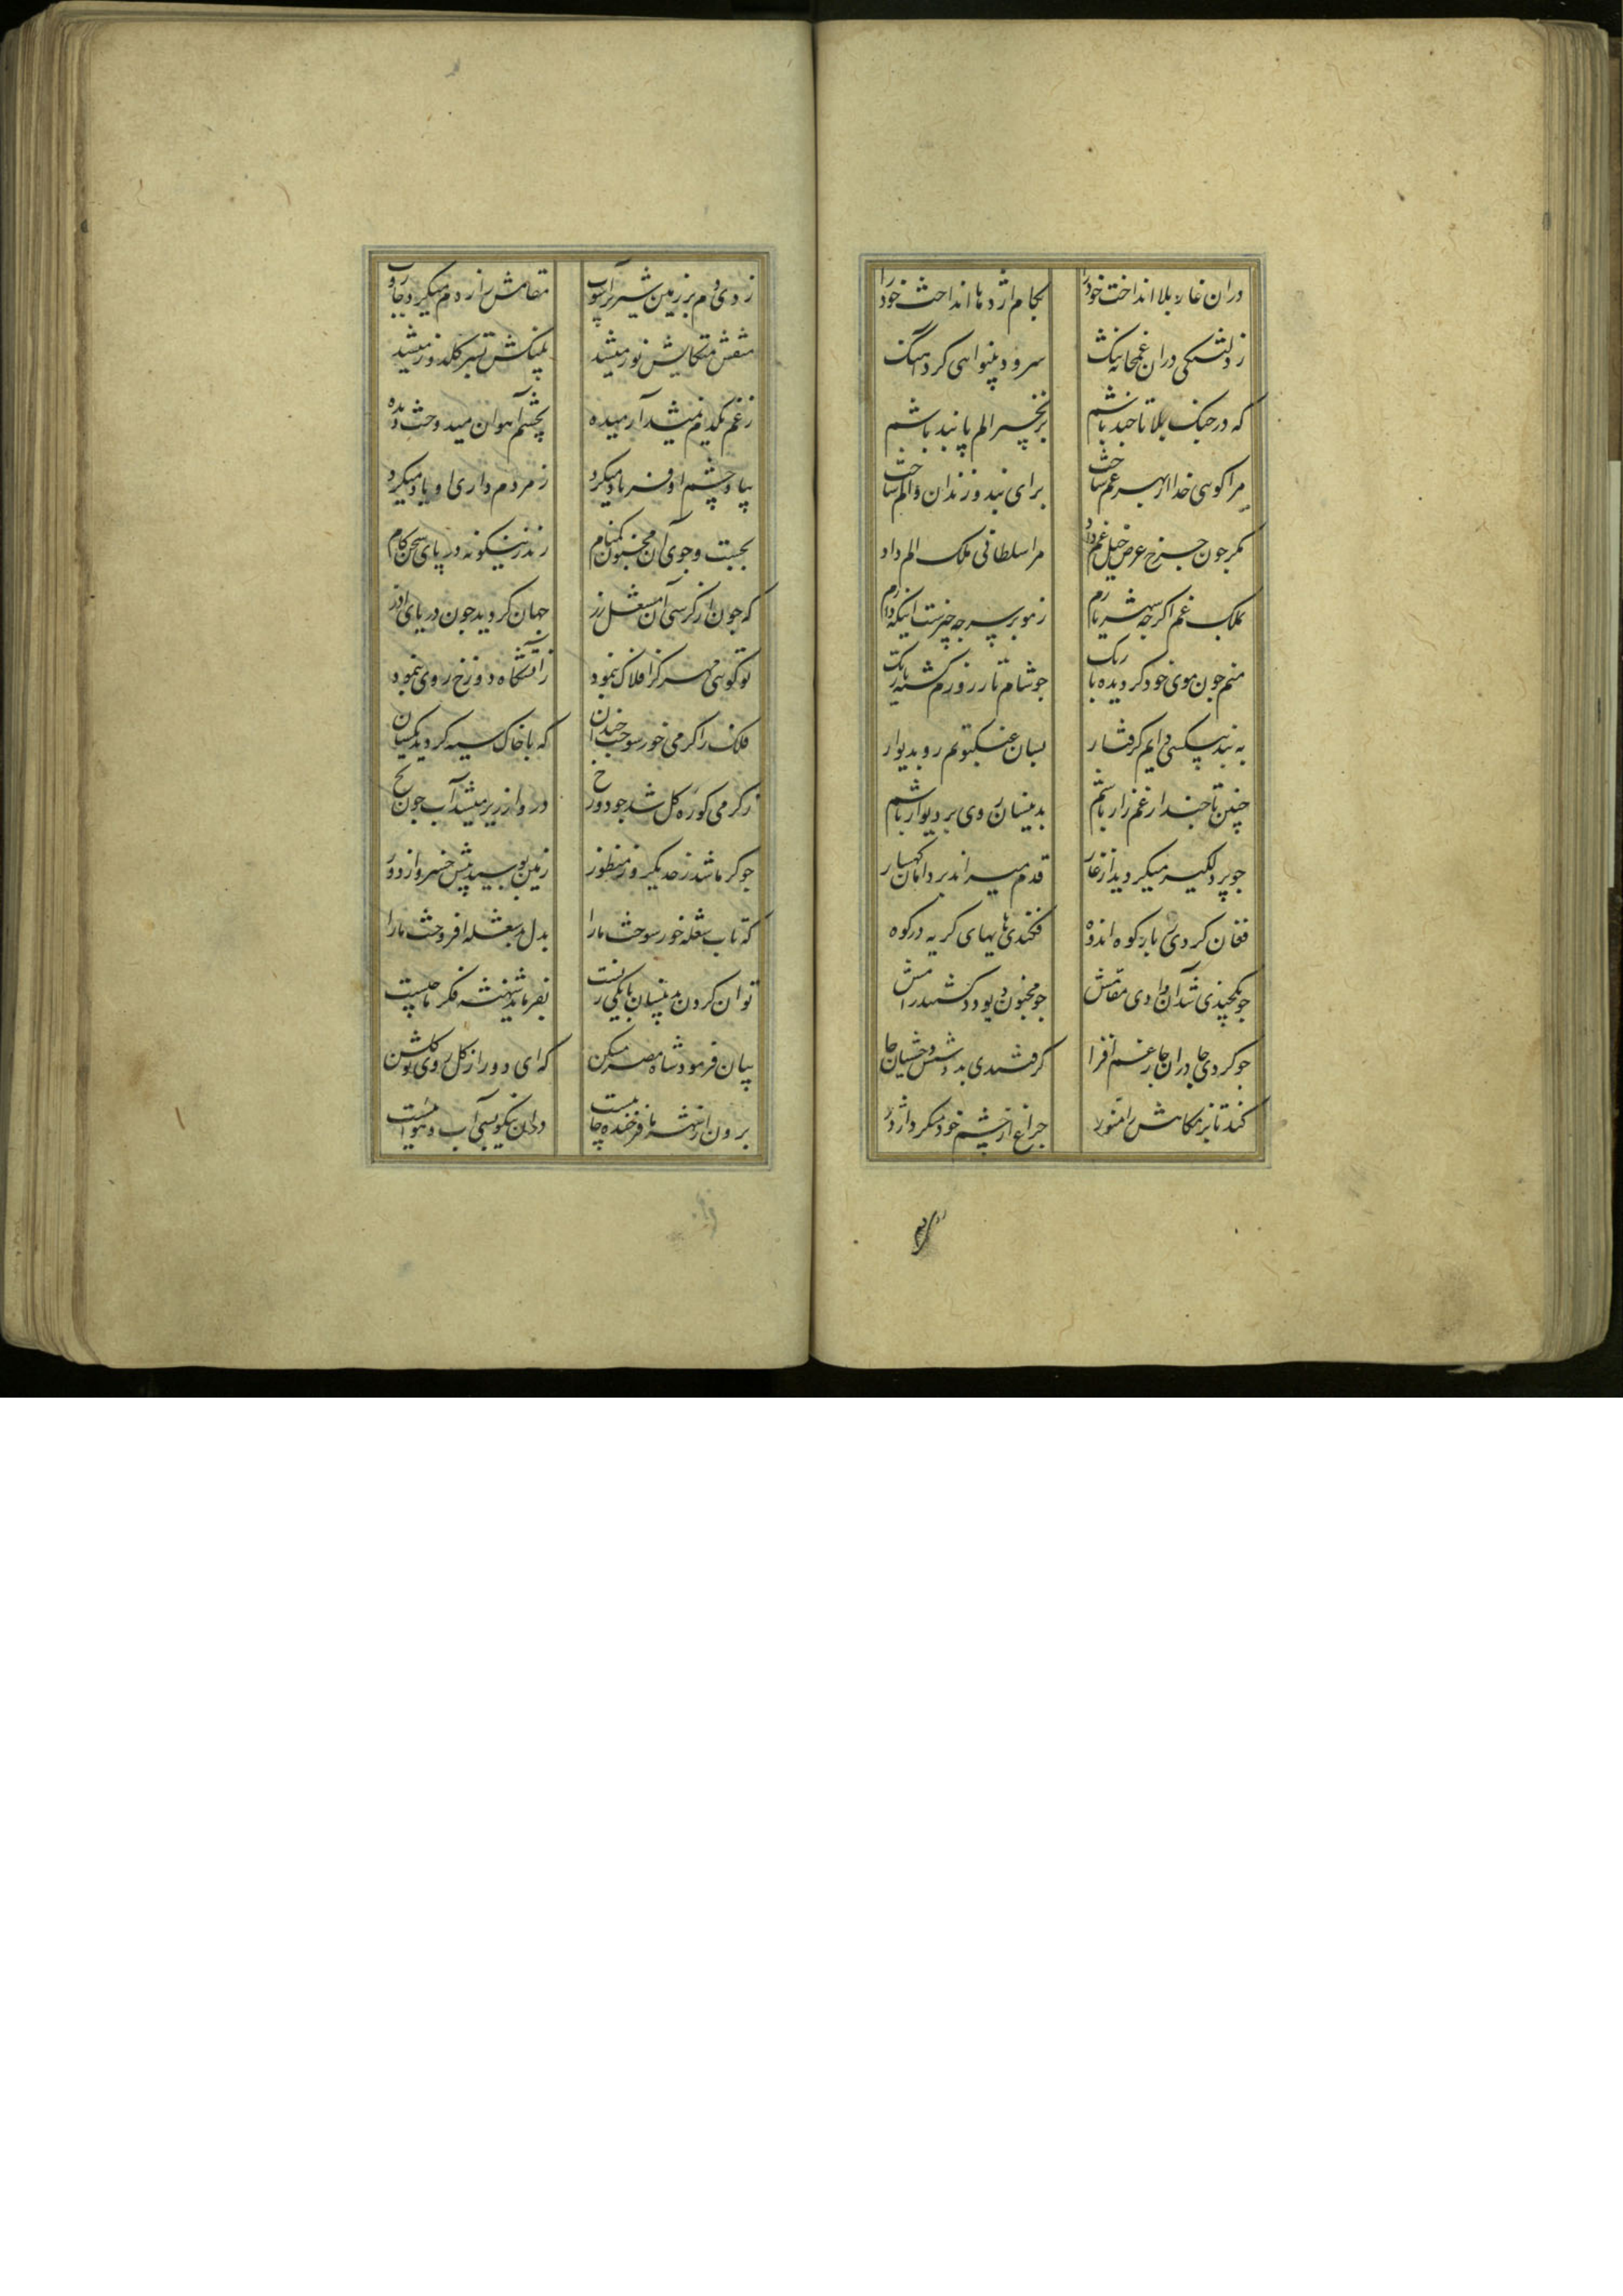 دران غار بلا انداخت خودرا بکام اژدها انداخت خودرا
ز دلتنکی دران غمخانه تنک سرود بینوایی کرد آهنک
که در جنک بلا تا چند باشم بزنجیر الم پابند باشم
مرا کویی خدا از بهر غم ساخت برای بند و زندان و الم ساخت
مکر چون چرخ عرض خیل غم داد مرا سلطانی ملک الم داد
بملک غم اکر جه شهریارم ز مو بر سر جه چترست اینکه دارم
منم جون موی خود کردیده باریک جو شام تار روزم کشته تاریک
به بند بیکسی دایم کرفتار بسان عنکبوتم رو بدیوار
چنین تا جند از غم زار باشم بدینسان روی بر دیوار باشم
جو پر دلکیر میکردید از غار قدم میراند بر دامان کهسار
فغان کردی ز بار کوه اندوه فکندی های های کریه در کوه
جو یکچندی شد آن وادی مقامش جو مجنون دیو و دد کشتند رامش
جو کردی جا دران جای غم افزا کرفتندی بدورش وحشیان جا
کند تا بزمکاهش را منور چراغ از چشم خود میکرد اژدر
زدی دم بر زمین شیر پرآشوب مقامش را ز دم میکرد جاروب
پلنکش
ز غم یکدم نمیشد آرمیده بچشم آهوان میدوخت دیده
بیاد چشم او فریاد میکرد ز مردم داری او یاد میکرد
بجست و جوی آن مجنون کمنام زند زینکونه در پای سخن کام
که جون از کرسی آن مشعل زر جهان کردید جون دریای آذر
تو کویی مهر کز افلاک بنمود ز آتشکاه دوزخ روی بنمود
فلک را کرمی خور سوخت چندان که با خاک سیه کردید یکسان
ز کرمی کوره کل شد جو دوزخ درو از زیر میشد آب جون یخ
جو کرما شد ز حد یکروز منظور زمین بوسید پیش خسرو از دور
که تاب شعله خور سوخت مارا بدل صد شعله افروخت مارا
توان کردن بدینسان تا یکی زیست بفرماید شهنشه فکر ما چیست
بیان فرمود شاه مصر مسکن که ای دور از کل روی تو کلشن
برون از شهر ما فرخنده جاییست دران نیکویی آب و هواییست